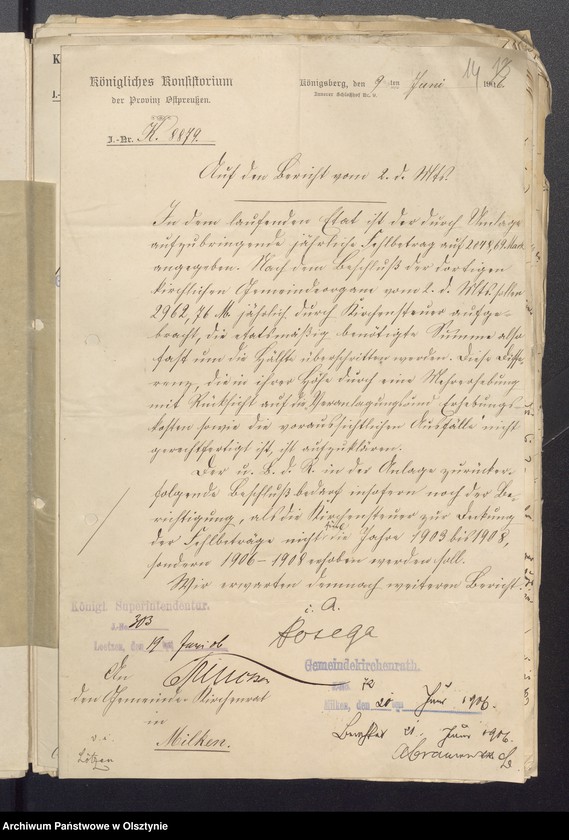 14 13
Königliches Konsistorium
der Provinz Ostpreußen.
J.-Nr. K. 8879.
Königsberg, den 9ten Juni 1906.
Auf den Bericht vom 2. d. Mts.
In dem laufenden Etat ist der durch Umlage
aufzubringende jährliche Fehlbetrag auf 2048,69 Mark
angegeben. Nach dem Beschluß der dortigen
kirchlichen Gemeindeorgane vom 2. d. Mts. sollen
2962,76 M. jährlich durch Kirchensteuer aufge-
bracht, die etatsmäßig benötigte Summe also
fast um die Hälfte überschritten werden. Diese Diffe-
renz, die in ihrer Höhe durch eine Mehrerhebung
mit Rücksicht auf die Veranlagungs- und Erhebungs-
kosten sowie die voraussichtlichen Ausfälle nicht
gerechtfertigt ist, ist aufzuklären.
Der u. B. d. R. in der Anlage zurücker-
folgende Beschluß bedarf insofern noch der Be-
richtigung, als die Kirchensteuer zur Deckung
der Fehlbeträge nicht für die Jahre 1903 bis 1908,
sondern 1906–1908 erhoben werden soll.
Wir erwarten demnach weiteren Bericht.
i. A.
Königl. Superintendentur.
J.-No. 303
Loetzen, den 19 Juni 06
An
den Gemeinde-Kirchenrat
in
Milken.
v. i.
Lötzen
Gemeindekirchenrath.
72
Milken, den 20 Juni 1906.
21. Juni 1906.
Archiwum Państwowe w Olsztynie